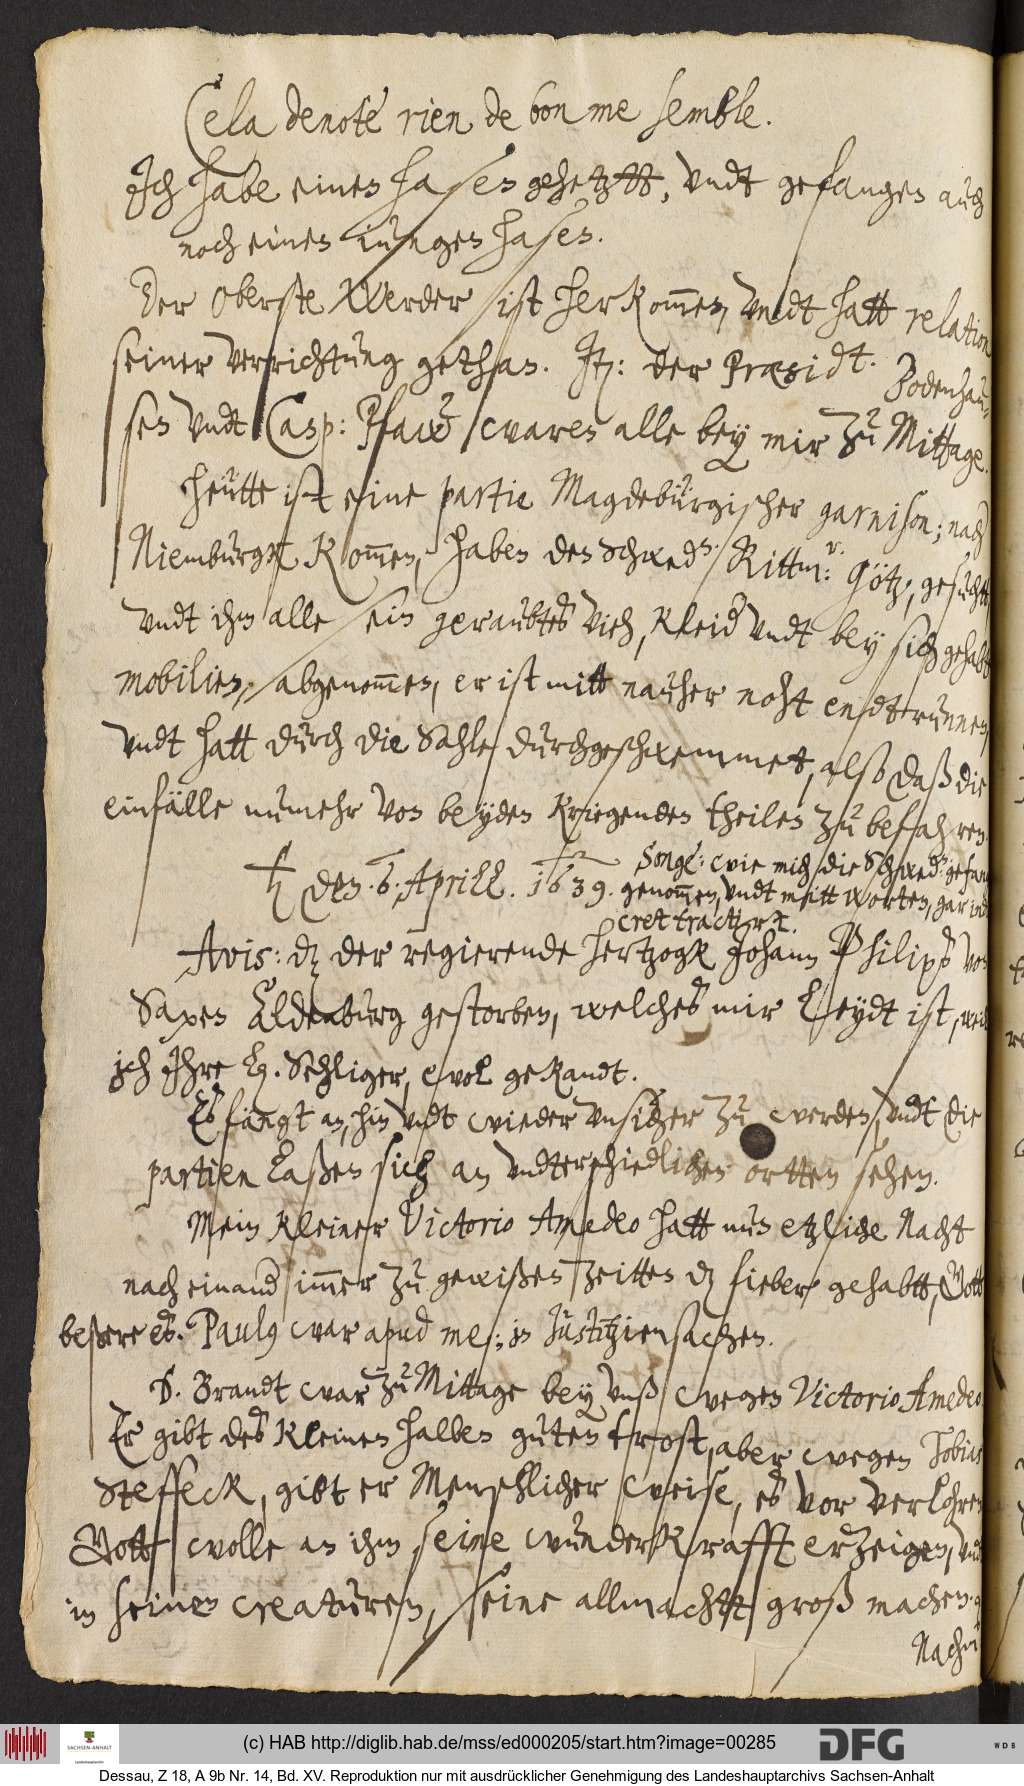 Cela denote rien de bon me semble.
Jch habe einen hasen gehetztt, vndt gefangen auch
noch einen iungen hasen.
Der Oberste Werder ist herkom̄en, vndt hatt relation
seiner verrichtung gethan. Jt: der Præsidt. Bodenhau-
sen vndt Casp: Pfaw waren alle bey mir zu Mittage.
Heutte ist eine partie Magdeburgischer garnison; nach
Niemburgk kom̄en, haben den Schwedn. Rittm: v. Götz, gesucht
vndt ihm alle sein geraubtes vieh, kleid vndt bey sich gehabt
mobilien, abgenom̄en, er ist mitt nauher noht endtrunnen,
vndt hatt durch die Sahle durchgeschwemmet, also daß die
einfälle numehr von beyden kriegenden theilen zu befahren.
♄ den .6. Aprill. 1639.
Songe: wie mich die Schwedn. gefang
genom̄en, vndt mitt worten, gar ind
cret tractirt.
Avis: dz der regierende hertzogk Johann Philips von
Saxen Aldenburg gestorben, welches mir leydt ist, weil
ich Jhre Lg. Sehliger, wol gekandt.
Es fängt an, hin vndt wieder vnsicher zu werden, vndt die
partien laßen sich an vndterschiedlichen ortten sehen.
Mein kleiner Victorio Amedeo hatt nun etzliche Nacht
nach einand im̄er zu gewißen zeitten dz fieber gehabtt, Gott
beßere es. Paulg war apud me; in Justitziensachen.
D. Brandt war zu Mittage bey vnß wegen Victorio Amedeo.
Er gibt des kleinen halben guten trost, aber wegen Tobias
Steffeck, gibt er Menschlicher weise, es vor verlohren
Gott wolle an ihm seine wunderkrafft erzeigen, vnd
in seinen creaturen, seine allmachtt groß machen.
Nachm
(c) HAB http://diglib.hab.de/mss/ed000205/start.htm?image=00285
SACHSEN-ANHALT
DFG
WDB
Dessau, Z 18, A 9b Nr. 14, Bd. XV. Reproduktion nur mit ausdrücklicher Genehmigung des Landeshauptarchivs Sachsen-Anhalt